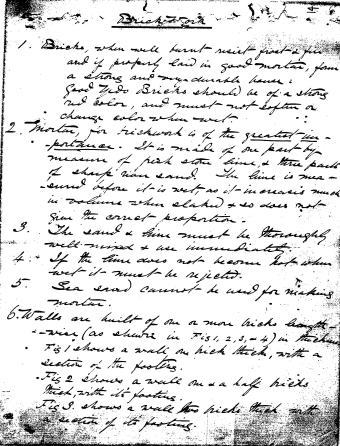 Brickwork
1. Bricks, when well burnt resist frost & fire
and if properly laid in good mortar, form
a strong and durable house:
good Bricks should be of a strong
red color, and must not soften or
change color when wet
2. Mortar, for brickwork is of the greatest im-
portance. It is made of one part by
measure of stone lime, & three parts
of sharp river sand. The lime is mea-
sured before it is wet as it increases much
in volume when slaked & so does not
give the correct proportion.
3. The sand & lime must be thoroughly
well mixed & use immediately.
4. If the lime does not become hot when
wet it must be rejected.
5. Sea sand cannot be used for making
mortar.
6. Walls are built of one or more bricks length-
wise, (as shown in Fig 1, 2, 3, & 4) in
Fig 1 shows a wall one brick thick, with a
section of the footing.
Fig 2 shows a wall one & a half bricks
thick, with its footing.
Fig 3. shows a wall two bricks thick with
a section of its footing.